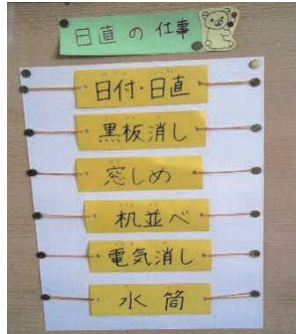 日直の仕事
日付・日直
黒板消し
窓しめ
机並べ
電気消し
水筒